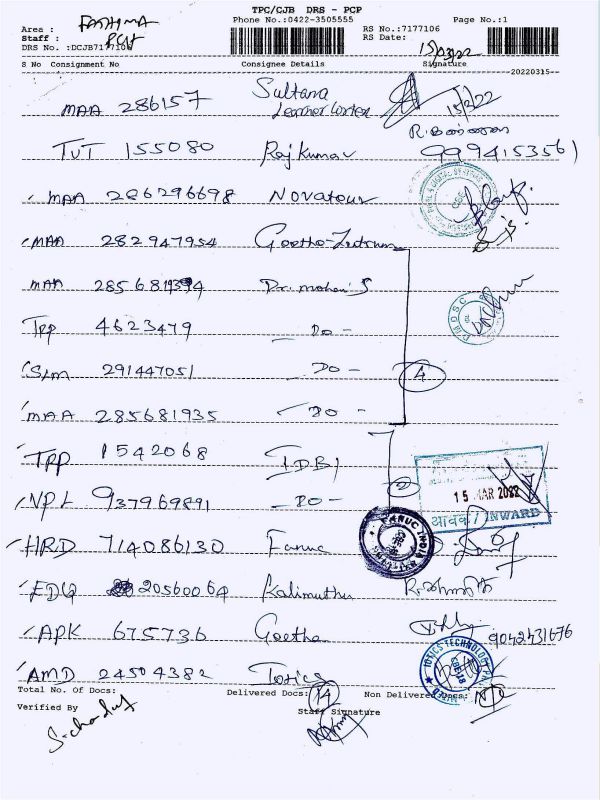 TPC/CJB DRS - PCP
Area : FATHIMA
Phone No.:0422-3505555
RS No.:7177106
Page No.:1
Staff :
RS Date: 15/03/22
DRS No. :DCJB7177106
S No Consignment No Consignee Details Signature
20220315-
MAA 286157 Sultana 15/3/22
TUT 155080 Rajkumar 9994153561
MAA 286296698 Novatour
MAA 282947954 Geetha
MAA Dr. mohan S
TPP 4623479 - DO -
SLM 291447051 - DO - 4
MAA 285681935 - DO -
TPP 1542068 IDBI
NPL 937969891 - DO - 2
15 MAR 2022
आवक / INWARD
HRD 714086130 Fanuc
FANUC INDIA
EDG 20560064 Kalimuthu
APK 675736 Geetha 9042431676
AMD 24504382 Totics
TOTICS TECHNOLOGY
Total No. Of Docs: Delivered Docs: 14 Non Delivered Docs: Nil
Verified By Staff Signature